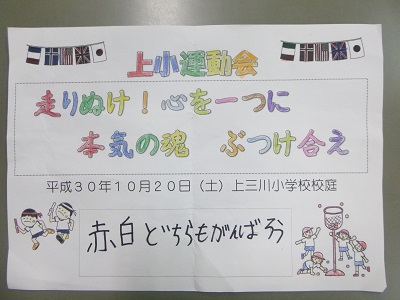 上小運動会
走りぬけ！心を一つに
本気の魂　ぶつけ合え
平成３０年１０月２０日（土）上三川小学校校庭
赤、白 どちらもがんばろう